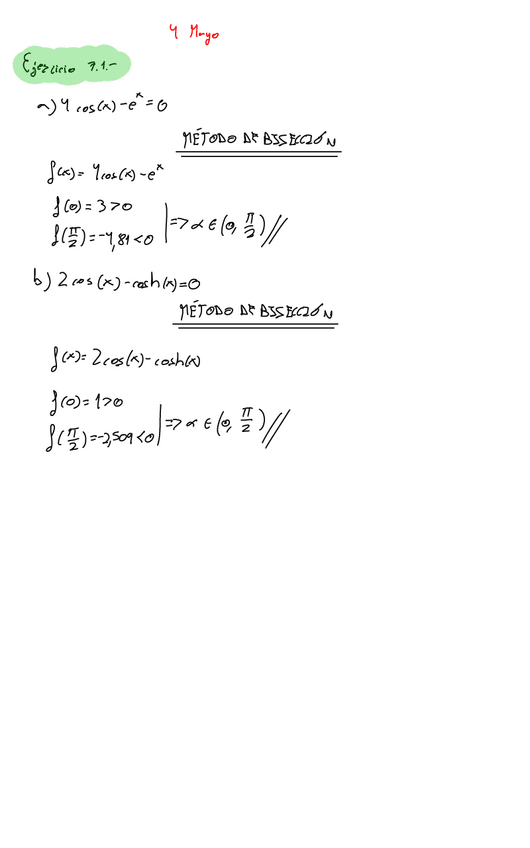 4 Mayo
Ejercicio 7.1.-
a) 4 cos(x) - e^x = 0
MÉTODO DE BISSECCIÓN
f(x) = 4cos(x) - e^x
f(0) = 3 > 0
f(π/2) = -4,81 < 0 | => α ∈ (0, π/2) //
b) 2 cos(x) - cosh(x) = 0
MÉTODO DE BISSECCIÓN
f(x) = 2cos(x) - cosh(x)
f(0) = 1 > 0
f(π/2) = -2,509 < 0 | => α ∈ (0, π/2) //